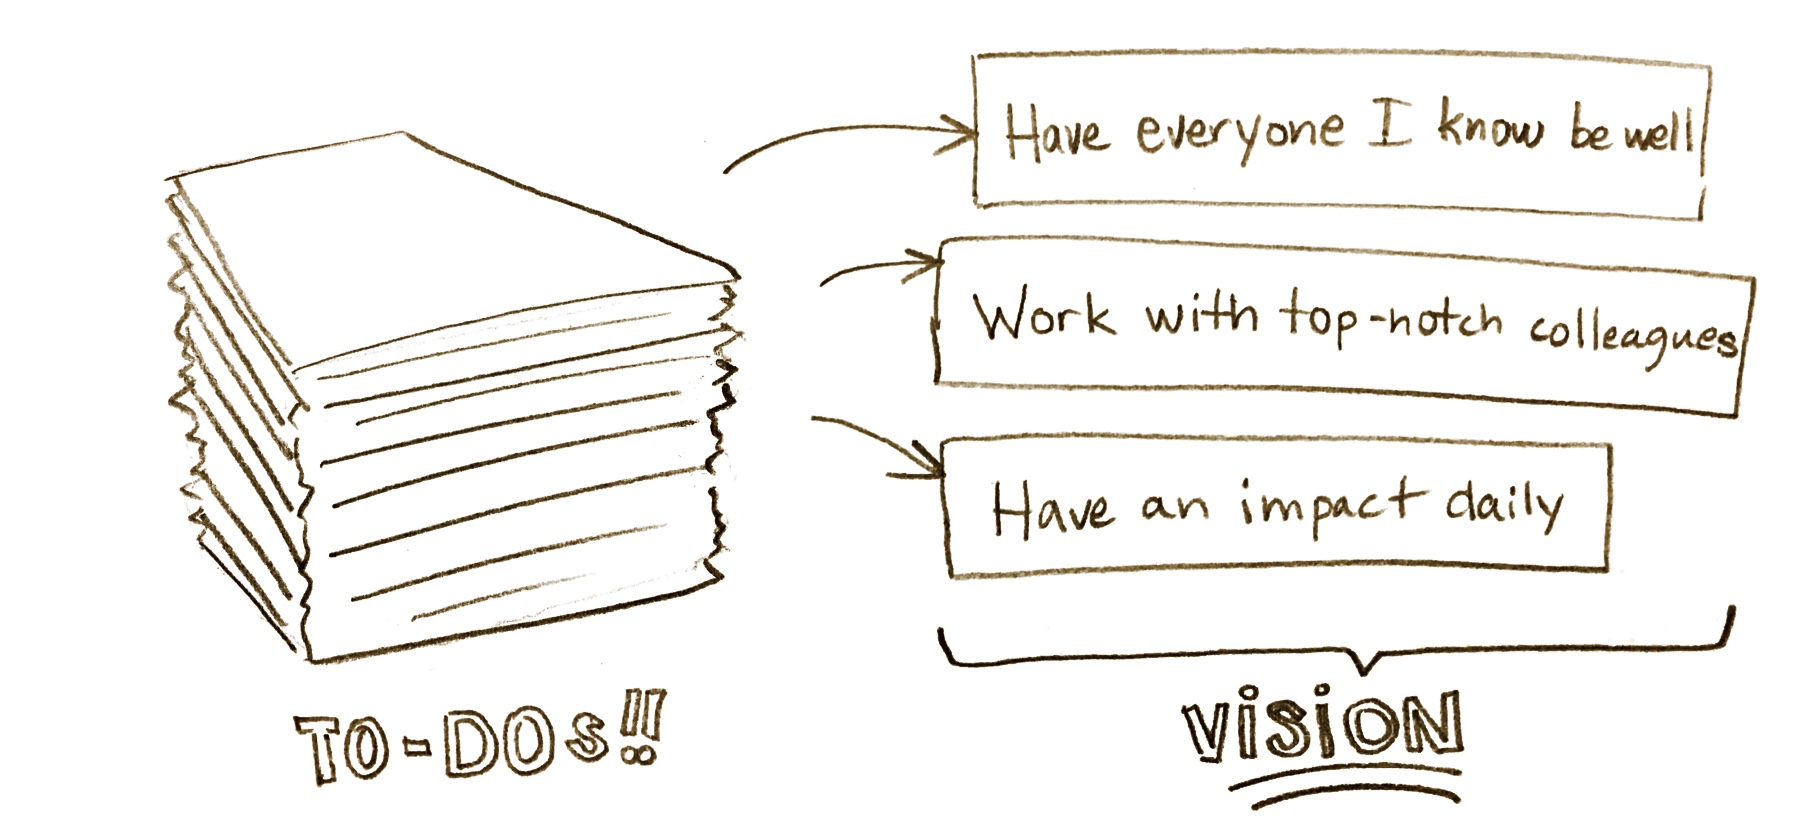 Have everyone I know be well
Work with top-notch colleagues
Have an impact daily
TO-DOs!!
ViSiON